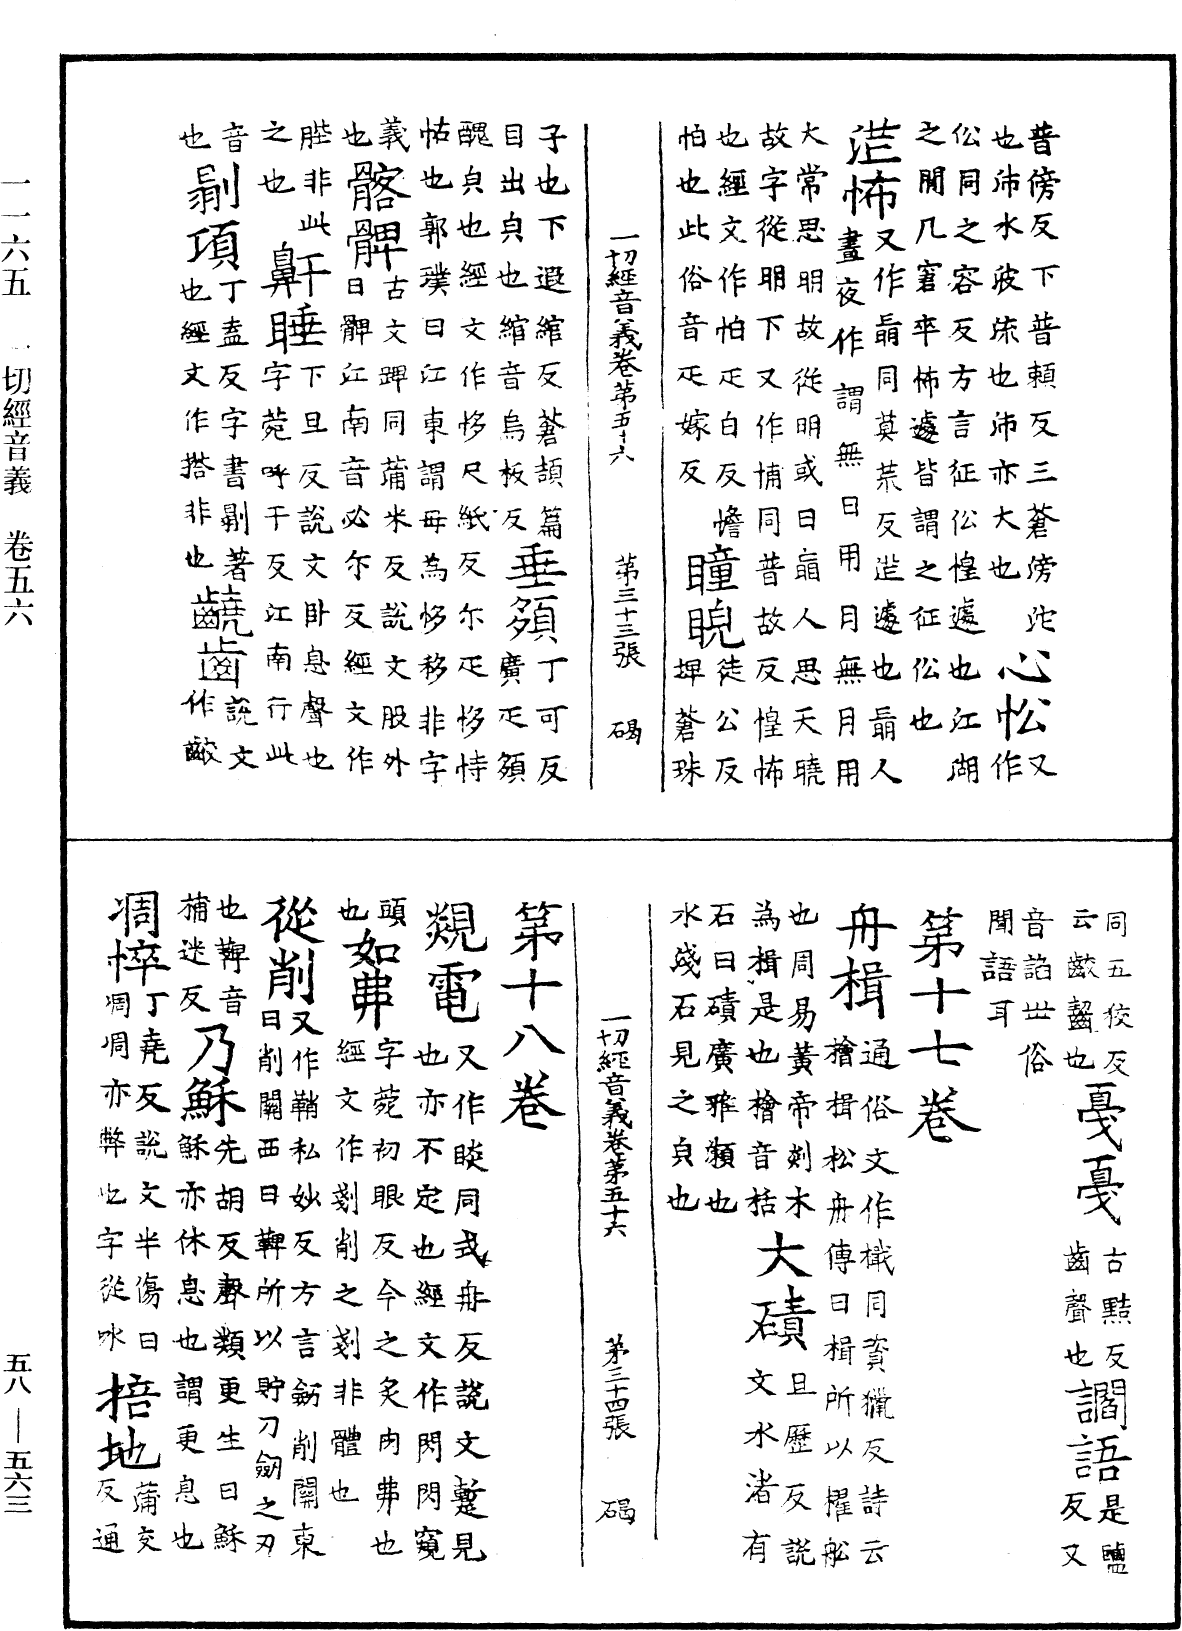 一一六五　一切經音義　卷五六
五八—五六三
普傍反下普賴反三蒼滂沱
也沛水波流也沛亦大也
心忪
又作
伀同之容反方言征伀惶遽也江湖
之間凡窘卒怖遽皆謂之征伀也
茫怖
又作萌同莫荒反茫遽也萌人
晝夜作謂無日用月無月用
大常思明故從明或曰萌人思天曉
故字從明下又作悑同普故反惶怖
也經文作怕疋白反憺
怕也此俗音疋嫁反
瞳睨
徒公反
埤蒼珠
一切經音義卷第五十六　第三十三張　碣
子也下遐綰反蒼頡篇
目出㒵也綰音烏板反
垂䫂
丁可反
廣疋䫂
醜㒵也經文作恀尺紙反尔疋恀恃
怙也郭璞曰江東謂母為恀移非字
義
也
髂髀
古文䠋同蒲米反說文股外
曰髀江南音必尔反經文作
䏶非此
之也
鼾睡
下旦反說文臥息聲也
字菀呼干反江南行此
音
也
剔項
丁盍反字書剔著
也經文作搭非也
齩齒
說文
作齩
同五狡反
云齩齧也
戛戛
古黠反
齒聲也
讇語
是鹽
反又
音諂世俗
聞語耳
第十七卷
舟楫
通俗文作檝同資獵反詩云
檜楫松舟傳曰楫所以櫂舩
也周易黃帝剡木
為楫是也檜音括
大磧
且歷反說
文水渚有
石曰磧廣雅瀬也
水淺石見之㒵也
一切經音義卷第五十六　第三十四張　碣
第十八卷
覢電
又作睒同式冉反說文暫見
也亦不定也經文作閃閃窺
頭
也
如弗
字菀初眼反今之炙肉弗也
經文作剗削之剗非體也
從削
又作鞘私妙反方言劒削關東
曰削關西曰鞞所以貯刀劒之刃
也鞞音
補迷反
乃穌
先胡反聲類更生曰穌
穌亦休息也謂更息也
凋悴
丁堯反說文半傷曰
凋凋亦弊也字從冰
掊地
蒲交
反通